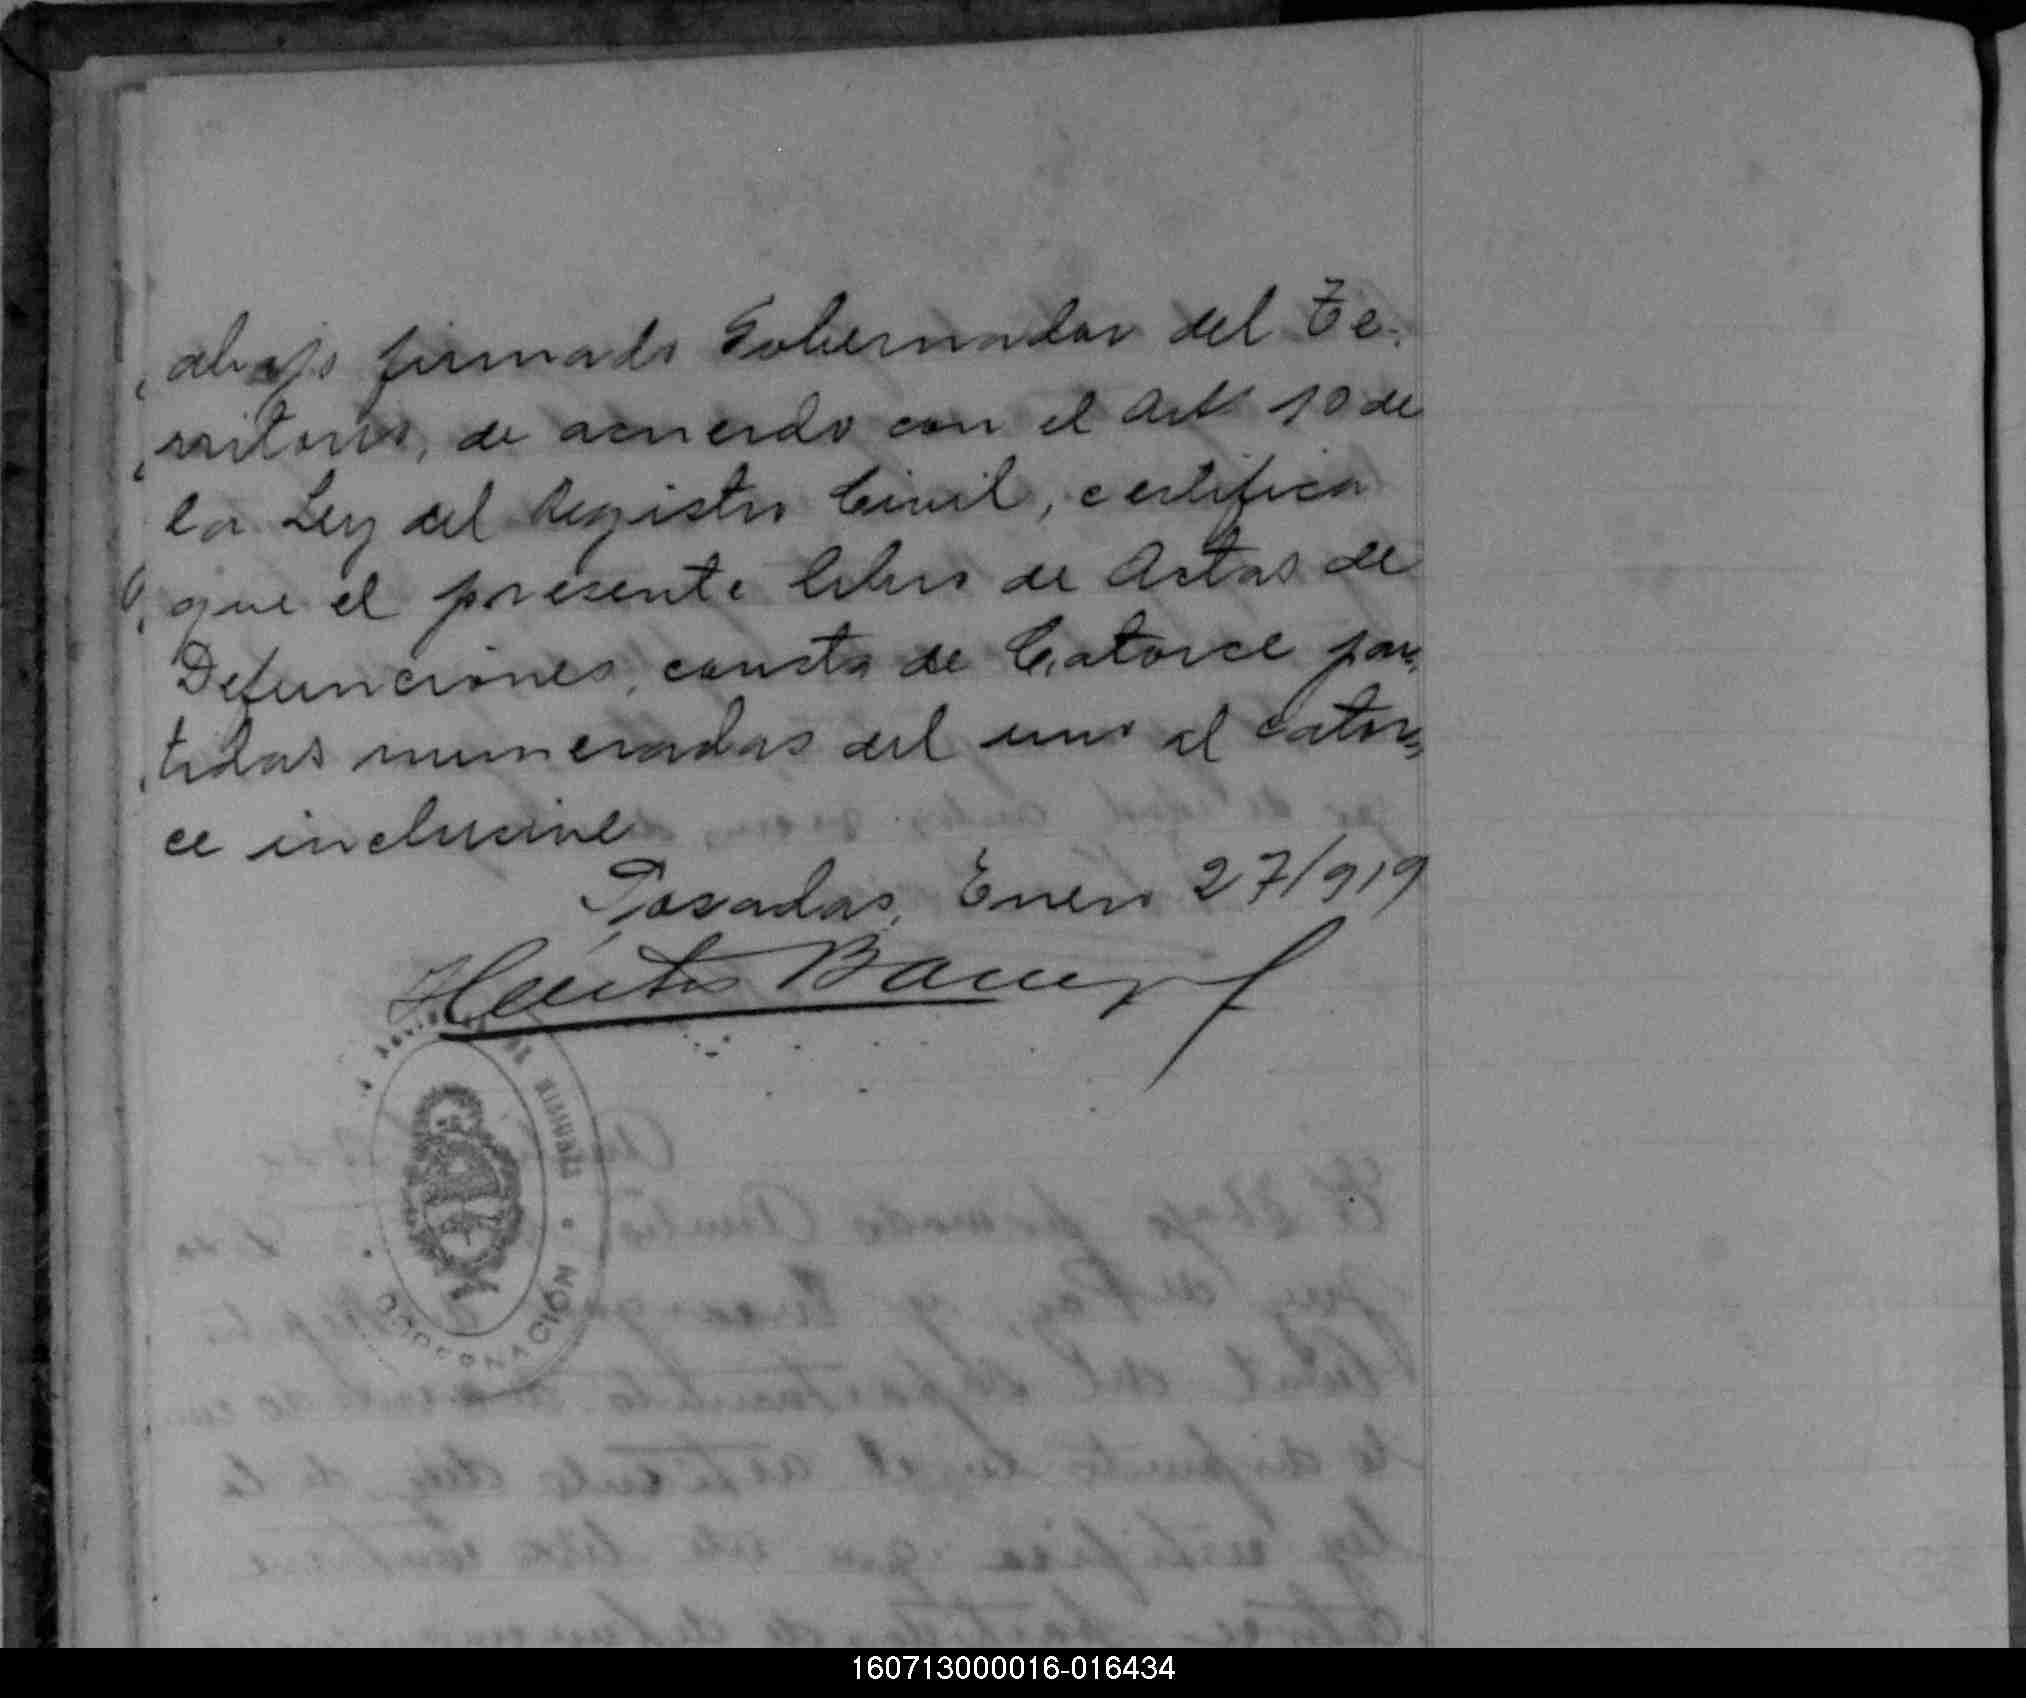 abajo firmado Gobernador del Te-
rritorio, de acuerdo con el Art 10 de
la Ley del Registro Civil, certifica
que el presente libro de Actas de
Defunciones, consta de Catorce par-
tidas numeradas del uno al cator-
ce inclusive
Posadas, Enero 27/919
GOBERNACIÓN
160713000016-016434